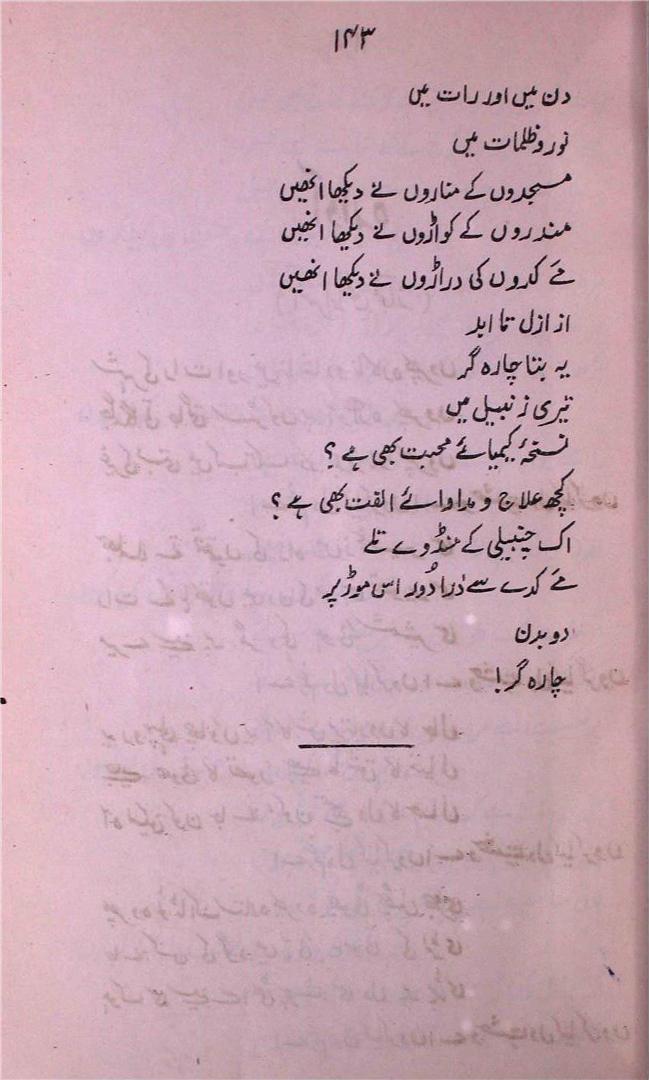 ۱۴۳
دن میں اور رات میں
نور و ظلمات میں
مسجدوں کے مناروں نے دیکھا انھیں
مندروں کے کواڑوں نے دیکھا انھیں
مے کدوں کی دراڑوں نے دیکھا انھیں
از ازل تا ابد
یہ بتا چارہ گر
تیری زنبیل میں
نسخۂ کیمیائے محبت بھی ہے ؟
کچھ علاج و مداوائے الفت بھی ہے ؟
اک چنبیلی کے منڈوے تلے
مے کدے سے ذرا دُور اس موڑ پر
دو بدن
چارہ گر!